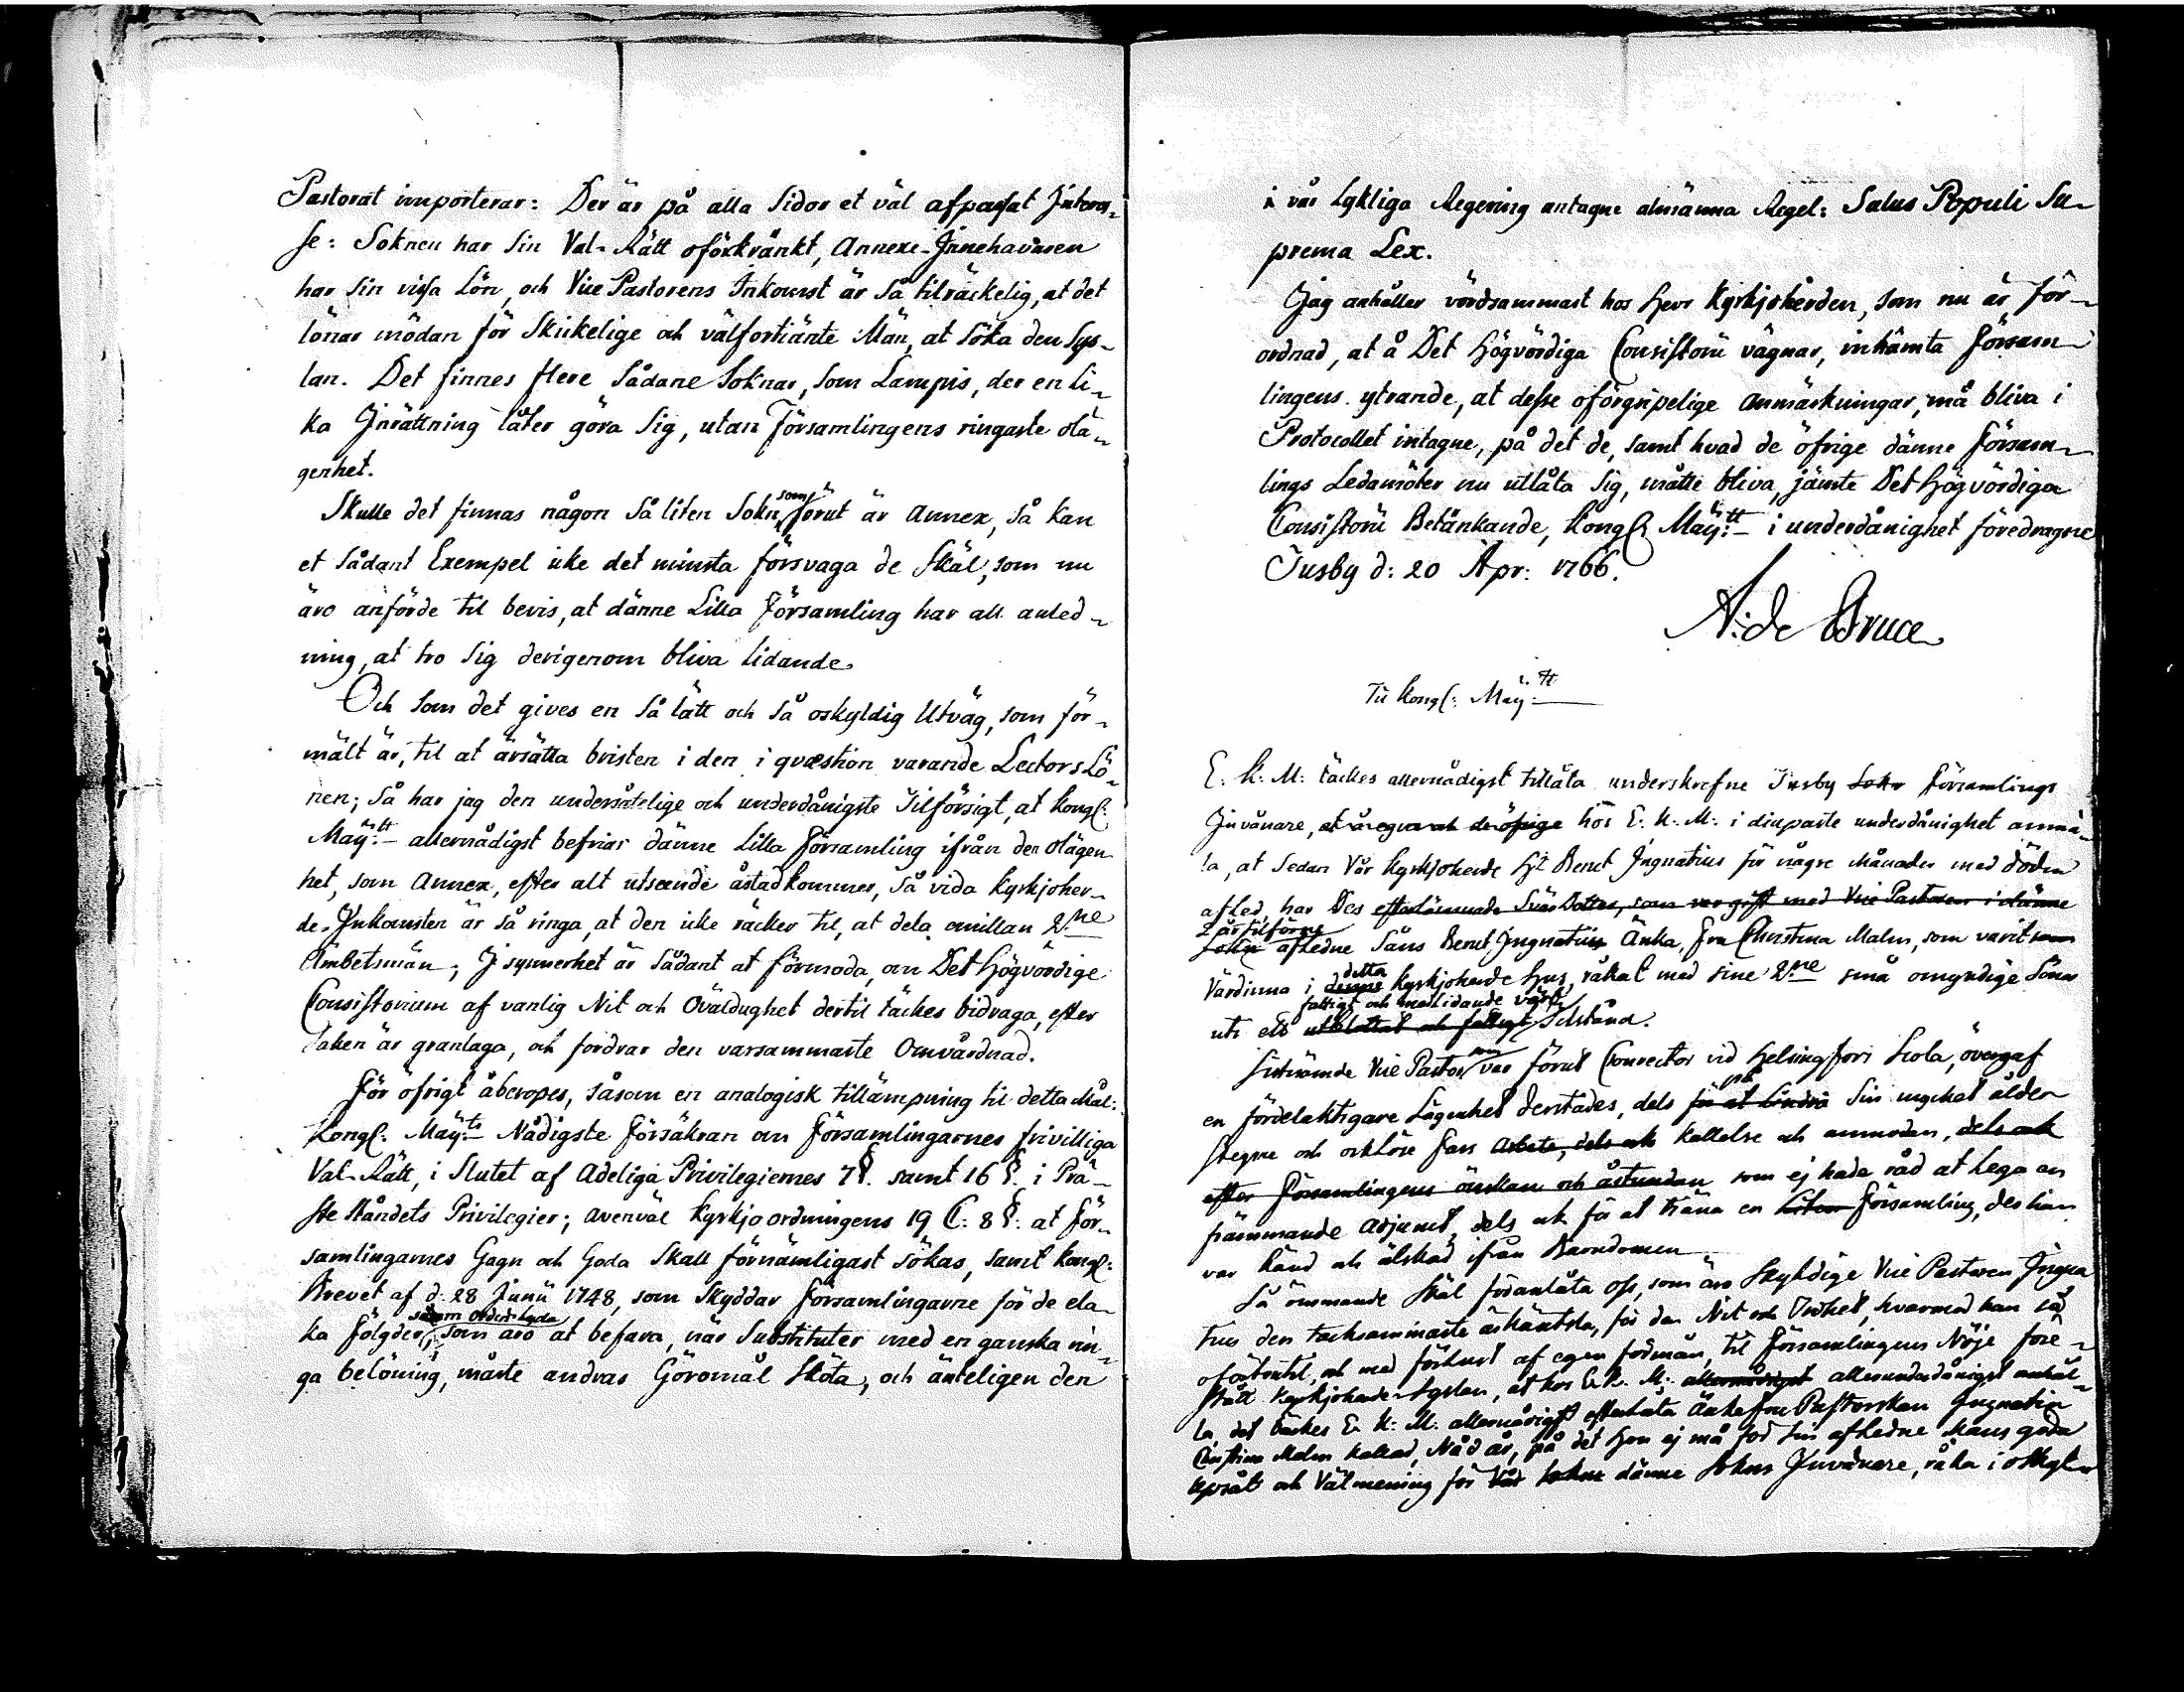 Pastorat importerar: Der är på alla Sidor et väl afpassat Intres-
se: Soknen har Sin Val-Rätt oförkränkt, Annexe-Innehavaren
har Sin vissa Lön, och Vice Pastorens Inkomst är Så tilräckelig, at det
lönar mödan för Skickelige och välfortiänte Män, at Söka den Sys-
lan. Det finnes flere Sådane Soknar, Som Lampis, der en Li-
ka Inrättning låter göra Sig, utan Församlingens ringaste olä-
genhet.
Skulle det finnas någon Så liten Sokn, som förut är Annex, Så kan
et Sådant Exempel icke det minsta försvaga de Skäl, som nu
äro anförde til bevis, at dänne Lilla Församling har all anled-
ning, at tro Sig derigenom bliva Lidande.
Och Som det gives en Så lätt och Så oskyldig Utväg, Som för-
mält är, til at ärsätta bristen i den i qvæstion varande Lectors Lö-
nen; Så har jag den undersåtelige och underdånigste Tilförsigt, at Kongl:
Maij:tt allernådigst befriar dänne Lilla Församling ifrån den olägen-
het, som Annex, efter alt utseende åstadkommer, Så vida Kyrkjoher-
de-Inkomsten är Så ringa, at den icke räcker til, at dela emillan 2:ne
Ämbetsmän; I synnerhet är Sådant at förmoda, om Det Högvördige
Consistorium af vanlig Nit och Oväldughet dertil täckes bidraga, efter
Saken är granlaga, och fordrar den varsammaste Omvårdnad.
För öfrigt åberopes, Såsom en analogisk tillämpning til detta Mål:
Kongl: Maij:ts Nådigste Försäkran om Församlingarnes frivilliga
Val-Rätt, i Slutet af Adeliga Privilegiernes 7 §. samt 16 §. i Prä-
ste Ståndets Privilegier; Avenväl Kyrkjo ordningens 19 C: 8 §: at För-
samlingarnes Gagn och Goda Skall förnämligast Sökas, samt Kongl:
Brevet af d: 28 Junii 1748, som Skyddar Församlingarne för de ela-
såsom orden lyda
ka fölgder, som äro at befara, när Substituter med en ganska rin-
ga belöning, måste andras Göromål Sköta, och änteligen den
i vår Lykliga Regering antagne almänna Regel: Salus Populi Su-
prema Lex.
Jag anhåller vördsammast hos Herr Kyrkjoherden, som nu är för-
ordnad, at å Det Högvördiga Consistorii vägnar, inhämta Försam-
lingens ytrande, at desse oförgripelige Anmärkningar, må bliva i
Protocollet intagne, på det de, samt hvad de öfrige dänne Försam-
lings Ledamöter nu utlåta Sig, måtte bliva, jämte Det Högvördiga
Consistorii Betänkande, Kongl Maij:tt i underdånighet föredragne
Tusby d: 20 Apr: 1766.
A: de Bruce
Til Kongl: Maij:tt
E. K: M: täckes allernådigst tillåta underskrefne Tusby Sokn Församlings
Invånare, hos E: K: M: i diupaste underdånighet anmä-
la, at Sedan Vår Kyrkjoherde Hr Bernt Ingnatius för någre Månader med döden
afled, har Des efterlämnade Svär Dotter, som var gift med Vice Pastoren i dänne
2 år tilförne
Sokn afledne Såns Bernt Ingnatii Änka, Fru Christina Malm, som varit
Värdinna i detta Kyrkjoherde Hus, råkat med sine 2:ne små omyndige Söner
fattigt och medlidande värdt
uti ett utblottat och fattigt Tilstånd.
Sistnämde Vice Pastor som var förut Conrector vid Helsingfors Scola, övergaf
en fördelaktigare Lägenhet derstädes, dels på Sin mycket ålder
stegne och orklöse Fars kallelse och anmodan, dels ock
efter Församlingens önskan och åstundan som ej hade råd at Lega en
främmande Adjunct, dels ock för at tiäna en Liten Församling, der han
var känd och älskad ifrån Barndomen.
Så ömmande Skäl föranlåta oss, som äro Skyldige Vice Pastoren Ingna
tius den tacksammaste ärkäntsla, för den Nit och Trohet, hvarmed han så
oförtrutit, och med förlust af egen förmån, til Församlingens Nöje före-
stått Kyrkjoherde-Syslan, at hos E. K. M: allerunderdånigst anhål-
la det täckes E: K: M: allernådigst efterlåta Änkefru Pastorskan Ingnatia
Christina Malm kallad, Nåd år, på det Hon ej må för Sin afledne Mans goda
upsåt och Välmening för dänne Sokns Invånare, råka i oskyl-